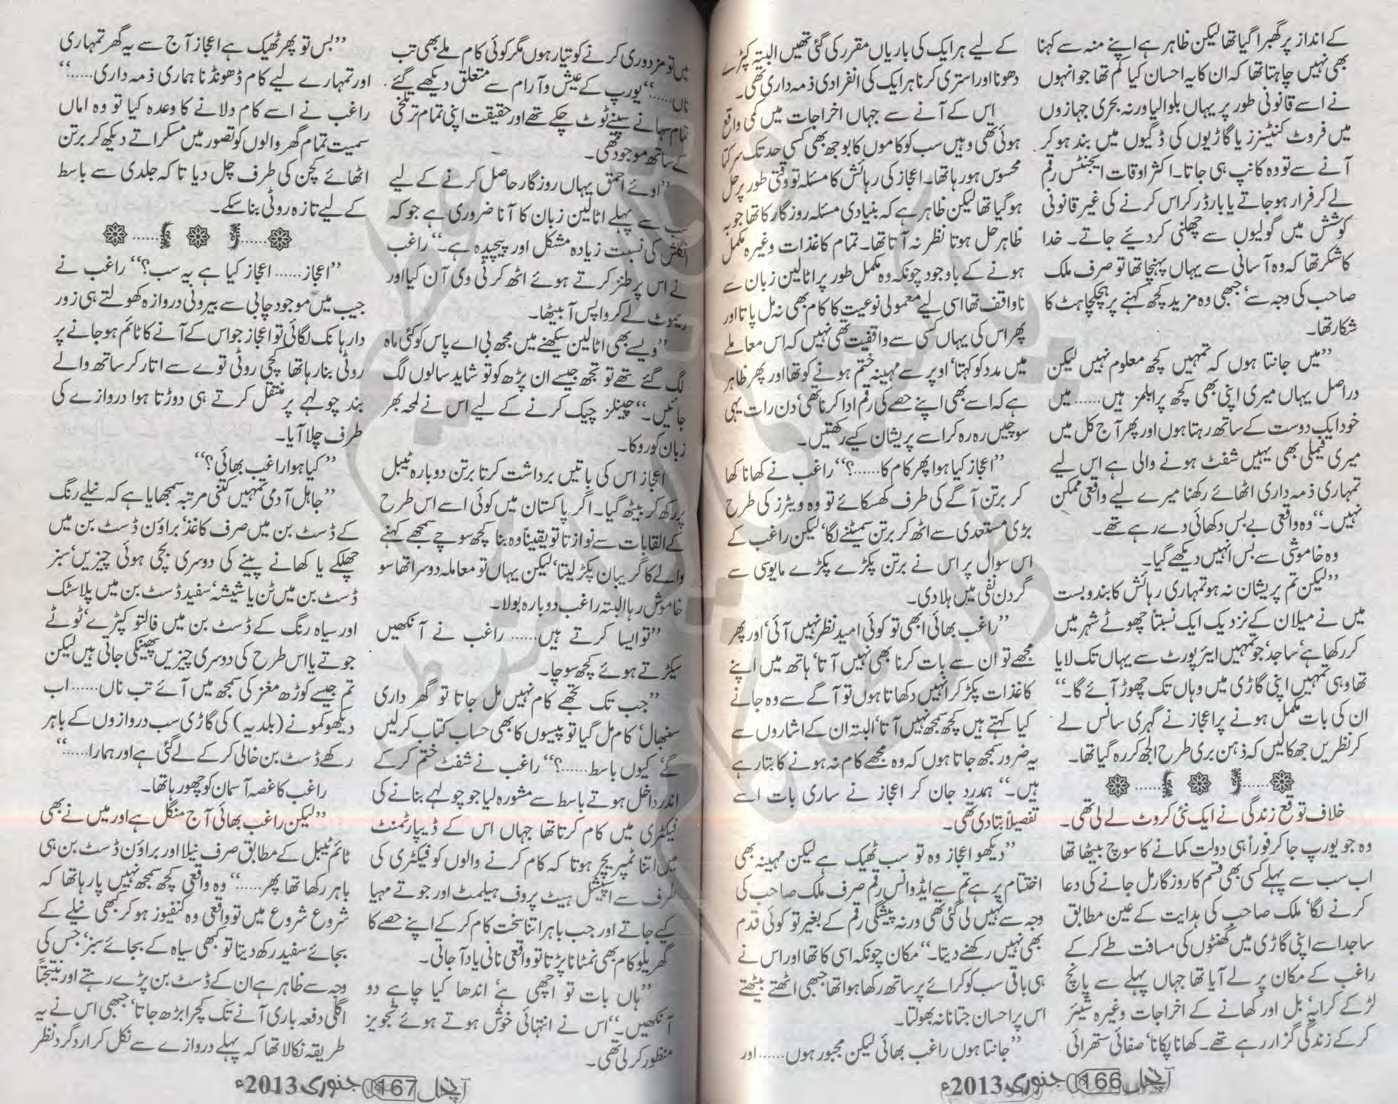 کے انداز پر گھبرا گیا تھا لیکن ظاہر ہے اپنے منہ سے کہنا
بھی نہیں چاہتا تھا کہ ان کا یہ احسان کیا کم تھا جو انہوں
نے اسے قانونی طور پر یہاں بلوا لیا ورنہ بحری جہازوں
میں فروٹ کنٹینرز یا گاڑیوں کی ڈگیوں میں بند ہو کر
آنے سے تو وہ کانپ ہی جاتا۔ اکثر اوقات ایجنٹس رقم
لے کر فرار ہو جاتے یا بارڈر کراس کرنے کی غیر قانونی
کوشش میں گولیوں سے چھلنی کر دیئے جاتے۔ خدا
کا شکر تھا کہ وہ آسانی سے یہاں پہنچا تھا تو صرف ملک
صاحب کی وجہ سے‘ جبھی وہ مزید کچھ کہنے پر ہچکچاہٹ کا
شکار تھا۔
’’میں جانتا ہوں کہ تمہیں کچھ معلوم نہیں لیکن
دراصل یہاں میری اپنی بھی کچھ پرابلمز ہیں...... میں
خود ایک دوست کے ساتھ رہتا ہوں اور پھر آج کل میں
میری فیملی بھی یہیں شفٹ ہونے والی ہے اس لیے
تمہاری ذمہ داری اٹھائے رکھنا میرے لیے واقعی ممکن
نہیں۔‘‘ وہ واقعی بے بس دکھائی دے رہے تھے۔
وہ خاموشی سے بس انہیں دیکھے گیا۔
’’لیکن تم پریشان نہ ہو تمہاری رہائش کا بندوبست
میں نے میلان کے نزدیک ایک نسبتاً چھوٹے شہر میں
کر رکھا ہے‘ ساجد‘ جو تمہیں ایئر پورٹ سے یہاں تک لایا
تھا وہی تمہیں اپنی گاڑی میں وہاں تک چھوڑ آئے گا۔‘‘
ان کی بات مکمل ہونے پر اعجاز نے گہری سانس لے
کر نظریں جھکا لیں کہ ذہن بری طرح الجھ کر رہ گیا تھا۔
خلاف توقع زندگی نے ایک نئی کروٹ لے لی تھی۔
وہ جو یورپ جا کر فوراً ہی دولت کمانے کا سوچ بیٹھا تھا
اب سب سے پہلے کسی بھی قسم کا روزگار مل جانے کی دعا
کرنے لگا‘ ملک صاحب کی ہدایت کے عین مطابق
ساجد اسے اپنی گاڑی میں گھنٹوں کی مسافت طے کر کے
راغب کے مکان پر لے آیا تھا جہاں پہلے سے پانچ
لڑکے کرایہ‘ بل اور کھانے کے اخراجات وغیرہ شیئر
کر کے زندگی گزار رہے تھے۔ کھانا پکانا‘ صفائی ستھرائی
کے لیے ہر ایک کی باریاں مقرر کی گئی تھیں البتہ کپڑے
دھونا اور استری کرنا ہر ایک کی انفرادی ذمہ داری تھی۔
اس کے آنے سے جہاں اخراجات میں کمی واقع
ہوئی تھی وہیں سب کو کاموں کا بوجھ بھی کسی حد تک سرکتا
محسوس ہو رہا تھا۔ اعجاز کی رہائش کا مسئلہ تو وقتی طور پر حل
ہو گیا تھا لیکن ظاہر ہے کہ بنیادی مسئلہ روزگار کا تھا جو بہ
ظاہر حل ہوتا نظر نہ آتا تھا۔ تمام کاغذات وغیرہ مکمل
ہونے کے باوجود چونکہ وہ مکمل طور پر اٹالین زبان سے
ناواقف تھا اسی لیے معمولی نوعیت کا کام بھی نہ مل پاتا اور
پھر اس کی یہاں کسی سے واقفیت تھی نہیں کہ اس معاملے
میں مدد کو کہتا‘ اوپر سے مہینہ ختم ہونے کو تھا اور پھر ظاہر
ہے کہ اسے بھی اپنے حصے کی رقم ادا کرنا تھی‘ دن رات یہی
سوچیں رہ رہ کر اسے پریشان کیے رکھتیں۔
’’اعجاز کیا ہوا پھر کام کا......؟‘‘ راغب نے کھانا کھا
کر برتن آگے کی طرف کھسکائے تو وہ ویٹرز کی طرح
بڑی مستعدی سے اٹھ کر برتن سمیٹنے لگا‘ لیکن راغب کے
اس سوال پر اس نے برتن پکڑے پکڑے مایوسی سے
گردن نفی میں ہلا دی۔
’’راغب بھائی ابھی تو کوئی امید نظر نہیں آئی‘ اور پھر
مجھے تو ان سے بات کرنا بھی نہیں آتا‘ ہاتھ میں اپنے
کاغذات پکڑ کر انہیں دکھاتا ہوں تو آگے سے وہ جانے
کیا کہتے ہیں کچھ سمجھ نہیں آتا‘ البتہ ان کے اشاروں سے
یہ ضرور سمجھ جاتا ہوں کہ وہ مجھے کام نہ ہونے کا بتا رہے
ہیں۔‘‘ ہمدرد جان کر اعجاز نے ساری بات اسے
تفصیلاً بتا دی تھی۔
’’دیکھو اعجاز وہ تو سب ٹھیک ہے لیکن مہینہ بھی
اختتام پر ہے تم سے ایڈوانس رقم صرف ملک صاحب کی
وجہ سے نہیں لی گئی تھی ورنہ پیشگی رقم کے بغیر تو کوئی قدم
بھی نہیں رکھنے دیتا۔‘‘ مکان چونکہ اسی کا تھا اور اس نے
ہی باقی سب کو کرائے پر ساتھ رکھا ہوا تھا جبھی اٹھتے بیٹھتے
اس پر احسان جتانا نہ بھولتا۔
’’جانتا ہوں راغب بھائی لیکن مجبور ہوں...... اور
آنچل 166 جنوری 2013ء
میں تو مزدوری کرنے کو تیار ہوں مگر کوئی کام ملے بھی تب
ناں......‘‘ یورپ کے عیش و آرام سے متعلق دیکھے گئے
تمام سہانے سپنے ٹوٹ چکے تھے اور حقیقت اپنی تمام تر تلخی
کے ساتھ موجود تھی۔
’’اوئے احمق یہاں روزگار حاصل کرنے کے لیے
سب سے پہلے اٹالین زبان کا آنا ضروری ہے جو کہ
انگلش کی نسبت زیادہ مشکل اور پیچیدہ ہے۔‘‘ راغب
نے اس پر طنز کرتے ہوئے اٹھ کر ٹی وی آن کیا اور
ریموٹ لے کر واپس آ بیٹھا۔
’’ویسے بھی اٹالین سیکھنے میں مجھ بی اے پاس کو کئی ماہ
لگ گئے تھے تو تجھ جیسے ان پڑھ کو تو شاید سالوں لگ
جائیں۔‘‘ چینلز چیک کرنے کے لیے اس نے لمحہ بھر
زبان کو روکا۔
اعجاز اس کی باتیں برداشت کرتا برتن دوبارہ ٹیبل
پر رکھ کر بیٹھ گیا۔ اگر پاکستان میں کوئی اسے اس طرح
کے القابات سے نوازتا تو یقیناً وہ بنا کچھ سوچے سمجھے کہنے
والے کا گریبان پکڑ لیتا‘ لیکن یہاں تو معاملہ دوسرا تھا سو
خاموش رہا البتہ راغب دوبارہ بولا۔
’’تو ایسا کرتے ہیں...... راغب نے آنکھیں
سکیڑتے ہوئے کچھ سوچا۔
’’جب تک تجھے کام نہیں مل جاتا تو گھر داری
سنبھال‘ کام مل گیا تو پیسوں کا بھی حساب کتاب کر لیں
گے‘ کیوں باسط......؟‘‘ راغب نے شفٹ ختم کر کے
اندر داخل ہوتے باسط سے مشورہ لیا جو چولہے بنانے کی
فیکٹری میں کام کرتا تھا جہاں اس کے ڈیپارٹمنٹ
میں اتنا ٹمپریچر ہوتا کہ کام کرنے والوں کو فیکٹری کی
طرف سے اسپیشل ہیٹ پروف ہیلمٹ اور جوتے مہیا
کیے جاتے اور جب باہر اتنا سخت کام کر کے اپنے حصے کا
گھریلو کام بھی نمٹانا پڑتا تو واقعی نانی یاد آ جاتی۔
’’ہاں بات تو اچھی ہے‘ اندھا کیا چاہے دو
آنکھیں۔‘‘ اس نے انتہائی خوش ہوتے ہوئے تجویز
منظور کر لی تھی۔
’’بس تو پھر ٹھیک ہے اعجاز آج سے یہ گھر تمہاری
اور تمہارے لیے کام ڈھونڈنا ہماری ذمہ داری......‘‘
راغب نے اسے کام دلانے کا وعدہ کیا تو وہ اماں
سمیت تمام گھر والوں کو تصور میں مسکراتے دیکھ کر برتن
اٹھائے کچن کی طرف چل دیا تا کہ جلدی سے باسط
کے لیے تازہ روٹی بنا سکے۔
’’اعجاز...... اعجاز کیا ہے یہ سب؟‘‘ راغب نے
جیب میں موجود چابی سے بیرونی دروازہ کھولتے ہی زور
دار ہانک لگائی تو اعجاز جو اس کے آنے کا ٹائم ہو جانے پر
روٹی بنا رہا تھا کچی روٹی توے سے اتار کر ساتھ والے
بند چولہے پر منتقل کرتے ہی دوڑتا ہوا دروازے کی
طرف چلا آیا۔
’’کیا ہوا راغب بھائی؟‘‘
’’جاہل آدمی تمہیں کتنی مرتبہ سمجھایا ہے کہ نیلے رنگ
کے ڈسٹ بن میں صرف کاغذ‘ براؤن ڈسٹ بن میں
چھلکے یا کھانے پینے کی دوسری بچی ہوئی چیزیں‘ سبز
ڈسٹ بن میں ٹن یا شیشہ‘ سفید ڈسٹ بن میں پلاسٹک
اور سیاہ رنگ کے ڈسٹ بن میں فالتو کپڑے‘ ٹوٹے
جوتے یا اس طرح کی دوسری چیزیں پھینکی جاتی ہیں لیکن
تم جیسے کوڑھ مغز کی سمجھ میں آئے تب ناں...... اب
دیکھو کمونے (بلدیہ) کی گاڑی سب دروازوں کے باہر
رکھے ڈسٹ بن خالی کر کے لے گئی ہے اور ہمارا......‘‘
راغب کا غصہ آسمان کو چھو رہا تھا۔
’’لیکن راغب بھائی آج منگل ہے اور میں نے بھی
ٹائم ٹیبل کے مطابق صرف نیلا اور براؤن ڈسٹ بن ہی
باہر رکھا تھا پھر......‘‘ وہ واقعی کچھ سمجھ نہیں پا رہا تھا کہ
شروع شروع میں تو واقعی وہ کنفیوز ہو کر کبھی نیلے کے
بجائے سفید رکھ دیتا تو کبھی سیاہ کے بجائے سبز‘ جس کی
وجہ سے ظاہر ہے ان کے ڈسٹ بن پڑے رہتے اور نتیجتاً
اگلی دفعہ باری آنے تک کچرا بڑھ جاتا‘ جبھی اس نے یہ
طریقہ نکالا تھا کہ پہلے دروازے سے نکل کر ارد گرد نظر
آنچل 167 جنوری 2013ء